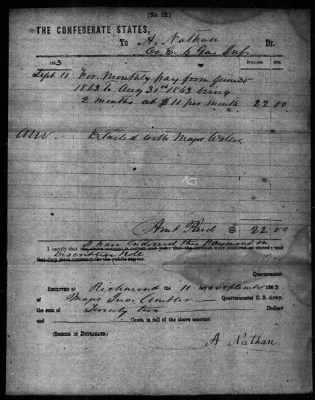 [No. 22.]
THE CONFEDERATE STATES,
To A. Nathan Dr.
Co. E. 4 Geo Inf.
1863 DOLLARS CTS.
Sept 11 For Monthly pay from June 30
1863 to Aug 31st 1863 being
2 months at $11 per month 22 00
Detailed with Major
Amt Paid $ 22 00
I have endorsed this payment on
I certify that
Descriptive Role
Quartermaster.
RECEIVED at Richmond the 11 day of September 1863,
of Major Jno. Ambler Quartermaster C. S. Army,
the sum of Twenty two Dollars
and Cents, in full of the above account.
(SIGNED IN DUPLICATE.)
A Nathan